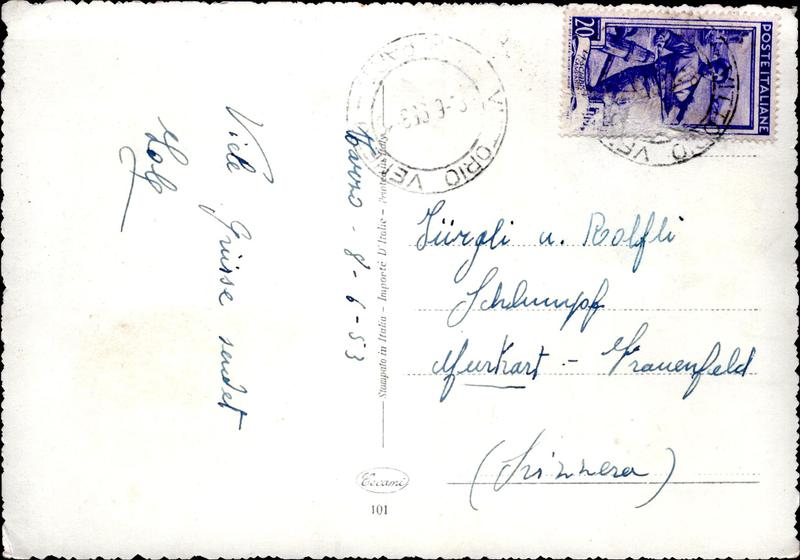 Viele Grüsse sendet
Tarzo - 8-6-53
Stampato in Italia - Importé D'Italie - Printed in Italy
Cecami
101
VITTORIO VENETO
POSTE ITALIANE
20
Jürgli u. Rolfli
Schlumpf
Murkart - Frauenfeld
(Svizzera)